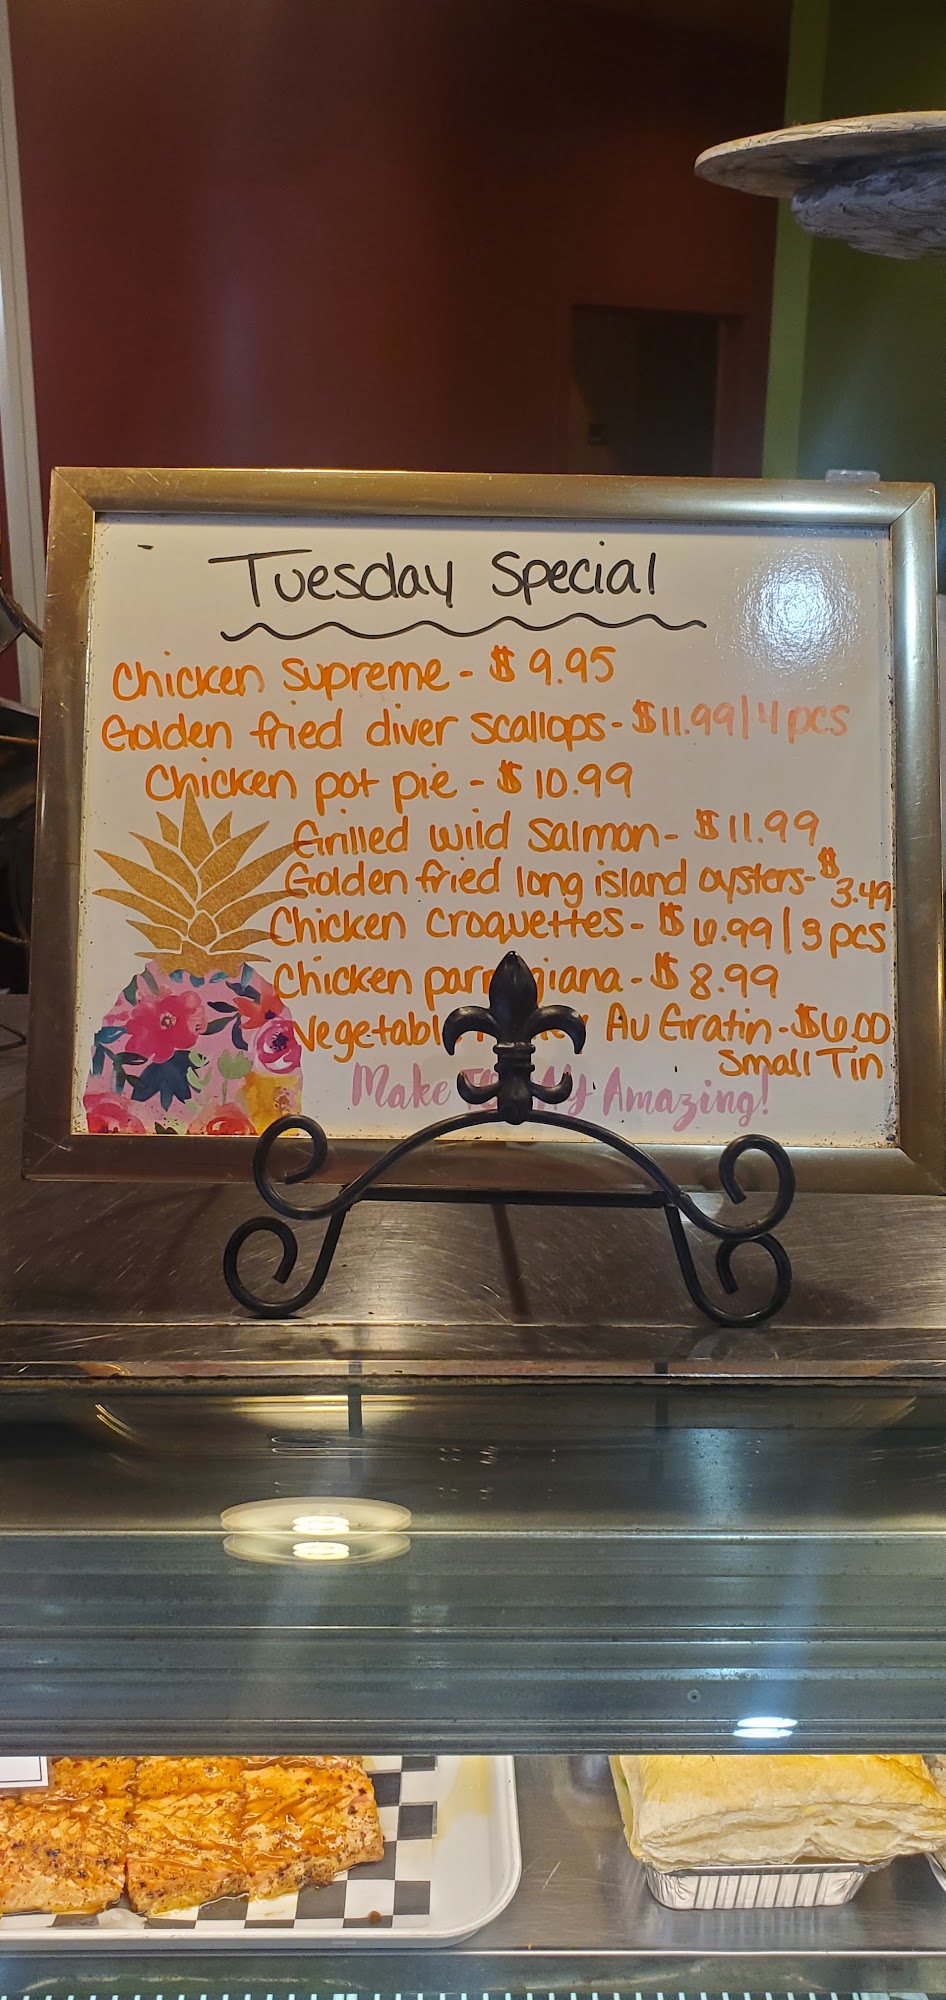 Tuesday Special
Chicken Supreme - $9.95
Golden fried diver scallops - $11.99/4pcs
Chicken pot pie - $10.99
Grilled wild Salmon - $11.99
Golden fried long island oysters - $3.49
Chicken Croquettes - $6.99/3pcs
Chicken parmigiana - $8.99
Vegetable Au Gratin - $6.00
Small Tin
Make Amazing!